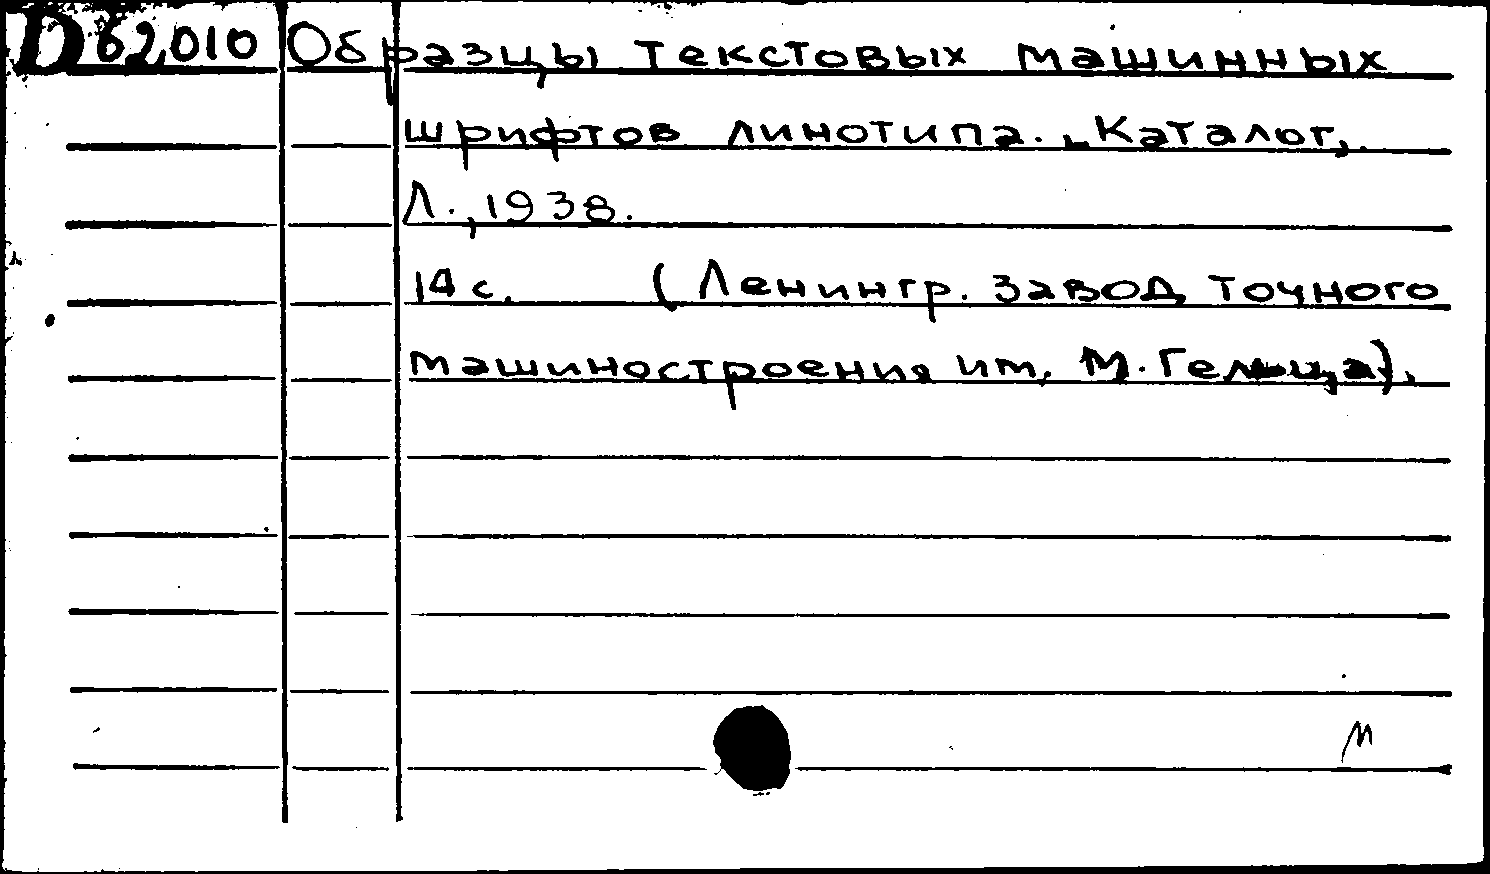 D 62,010 Образцы текстовых машинных
шрифтов линотипа. Каталог,.
Л., 1938.
14 с. (Ленингр. завод точного
машиностроения им. М. Гельца).
М